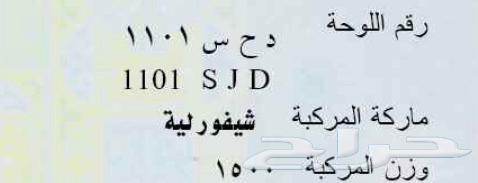 رقم اللوحة د ح س ١١٠١
1101 S J D
ماركة المركبة شيفورلية
وزن المركبة ١٥٠٠
حراج